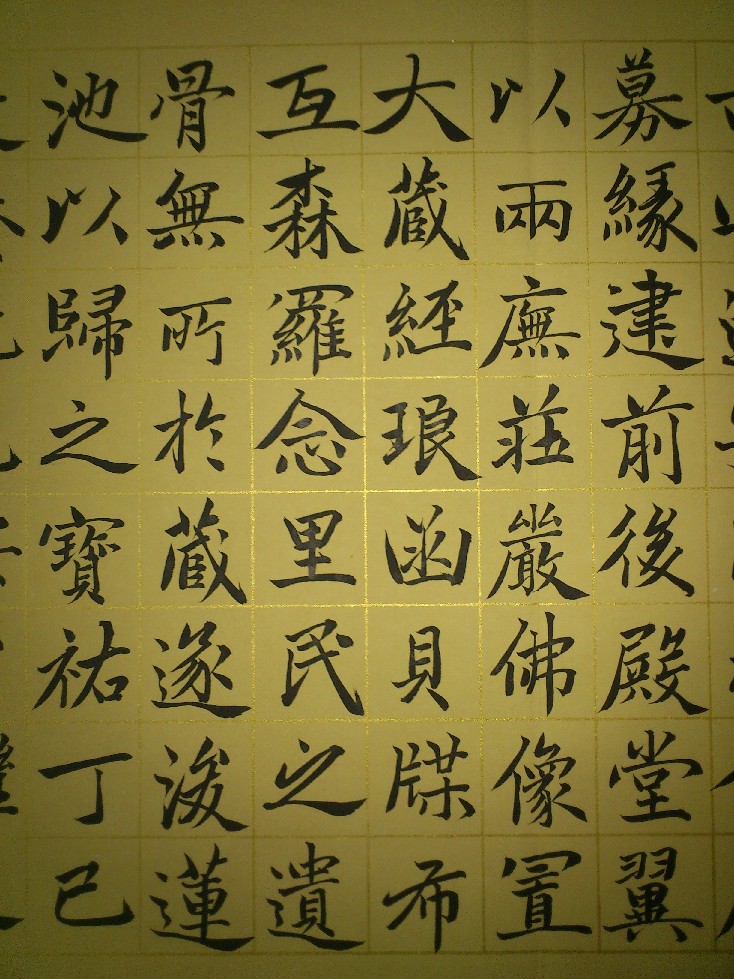 募緣建前後殿堂翼
以兩廡莊嚴佛像置
大藏經琅函貝牒布
互森羅念里民之遺
骨無所於藏遂浚蓮
池以歸之寶祐丁巳